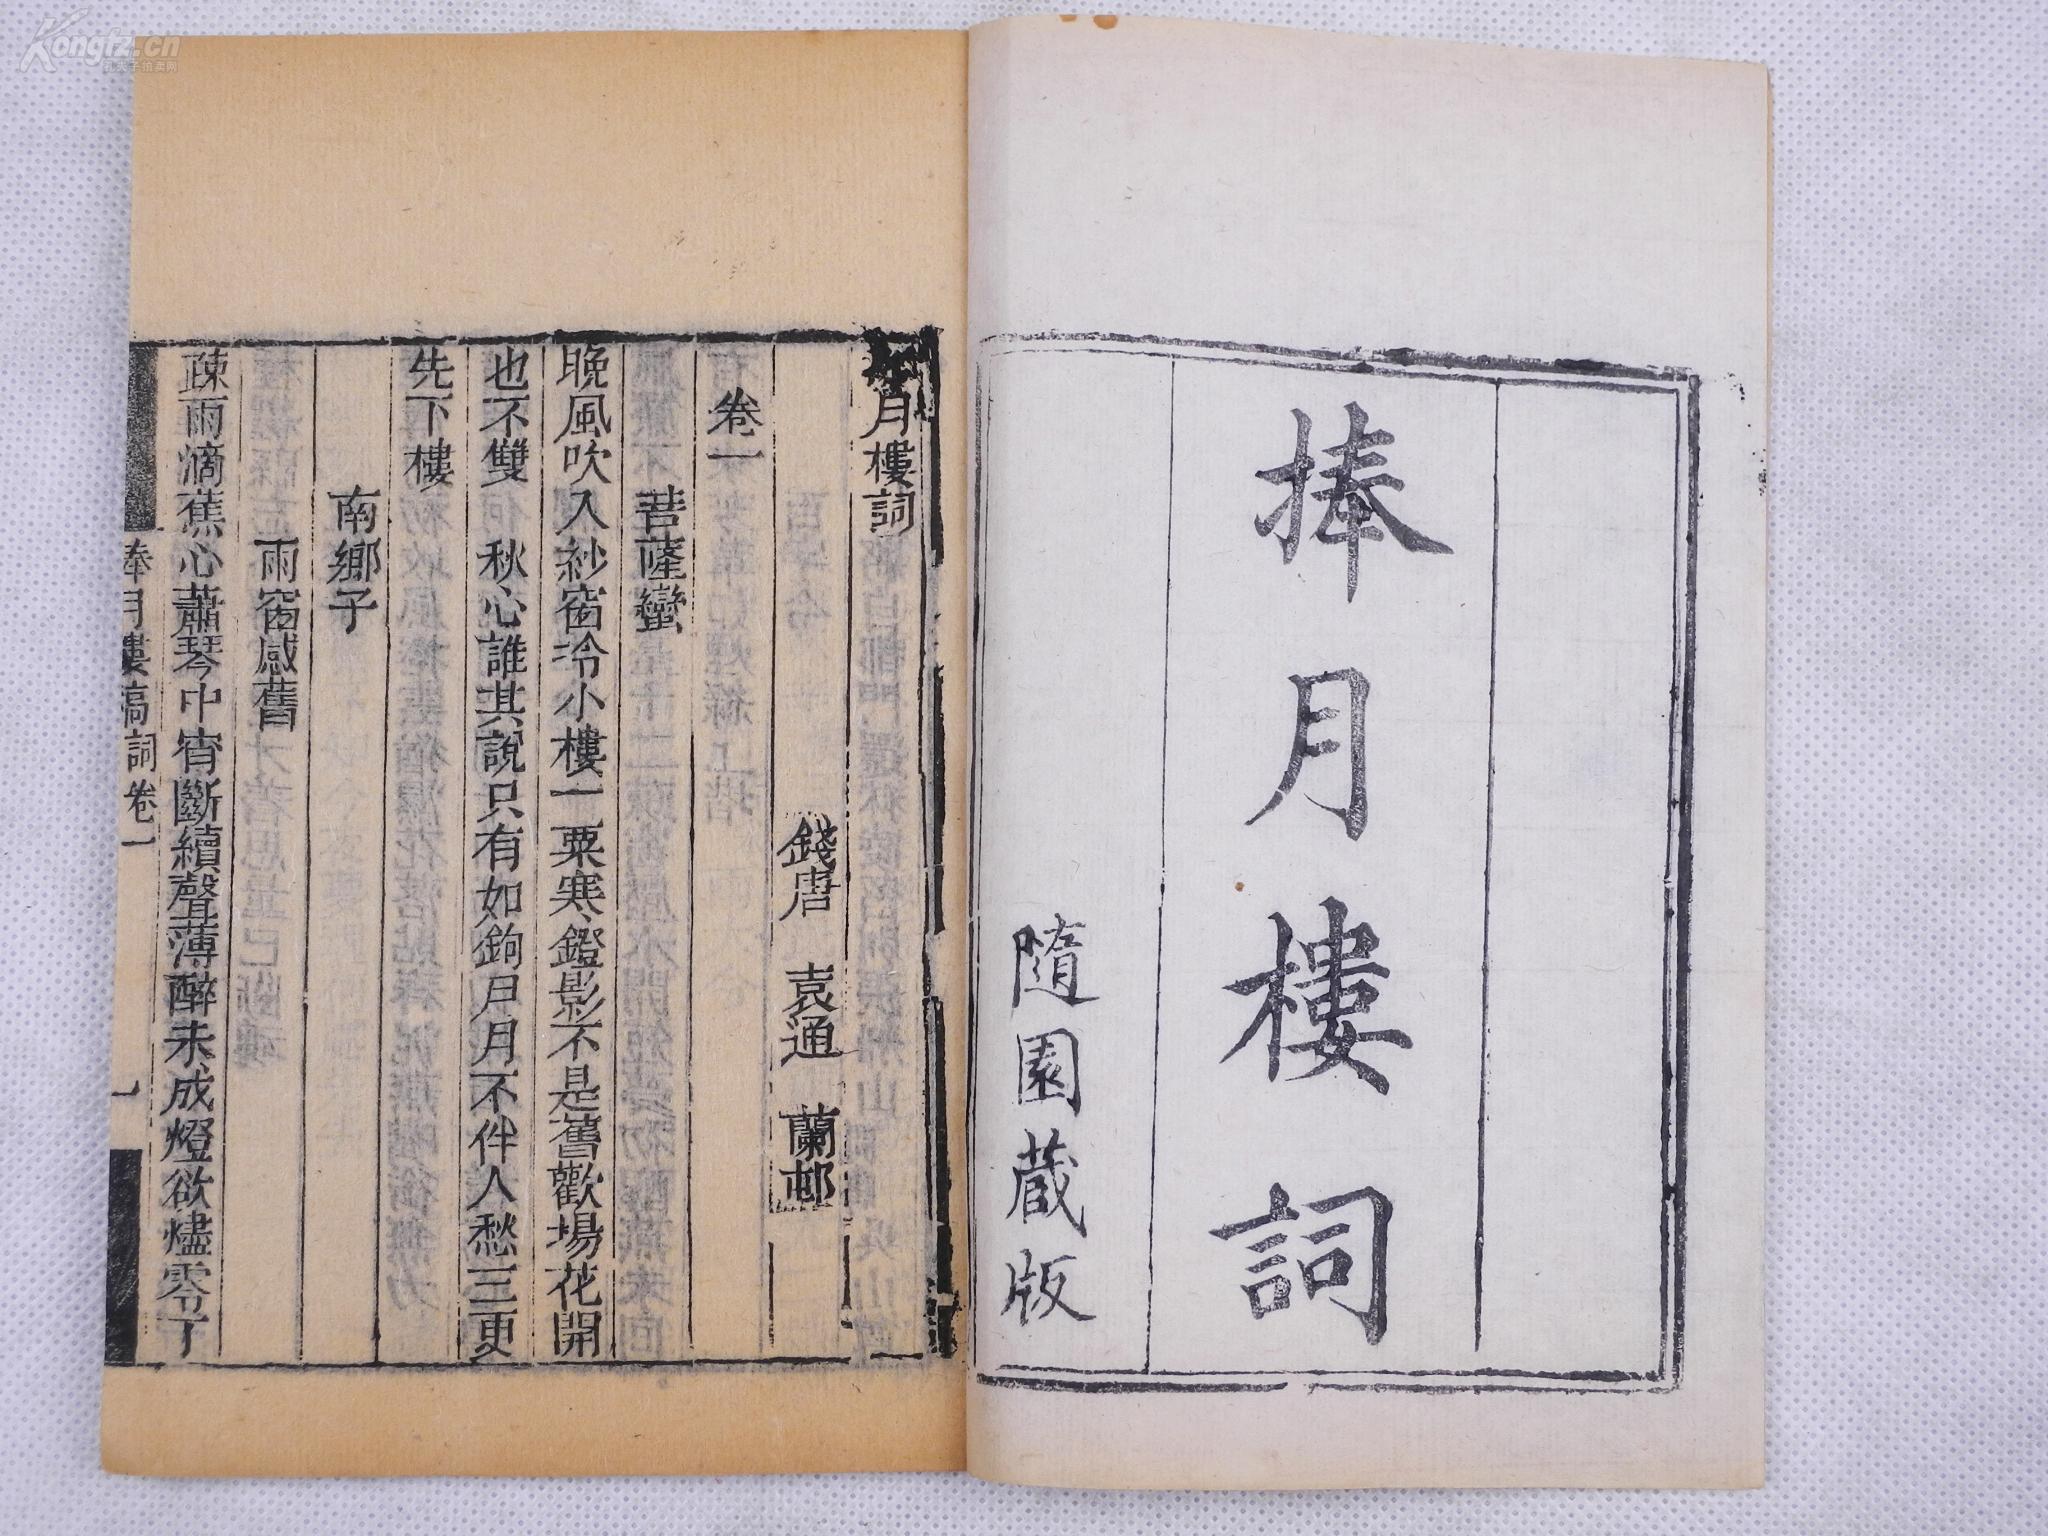 捧月樓詞
隨園蔵版
月樓詞
錢唐 袁通 蘭邨
卷一
菩薩蠻
晚風吹入紗窗冷小樓一粟寒鐙影不是舊歡場花開
也不雙 秋心誰共說只有如鉤月月不伴人愁三更
先下樓
南鄉子
雨窗感舊
疎雨滴蕉心蕭琴中宵斷續聲薄醉未成燈欲燼零丁
捧月樓稿詞卷一
Kongfz.cn
孔夫子拍卖网